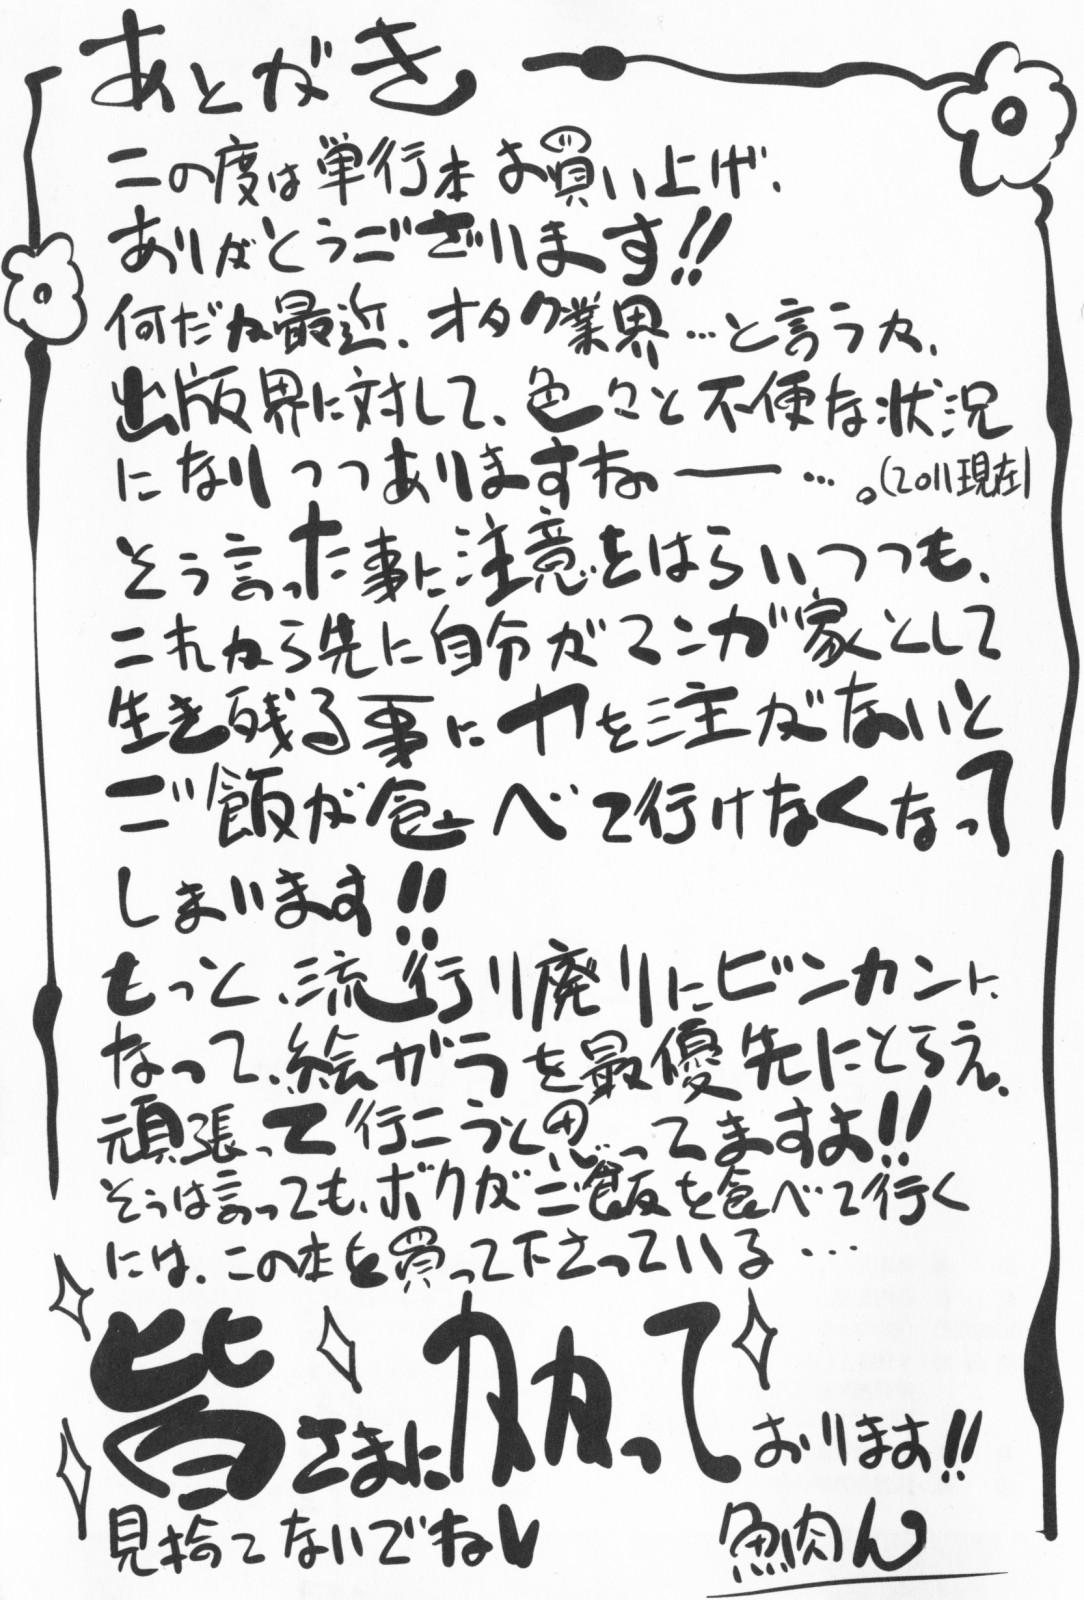 あとがき
この度は単行本お買い上げ、
ありがとうございます!!
何だか最近、オタク業界…と言うか、
出版界に対して、色々と不便な状況
になりつつありますねー…。(2011現在)
そう言った事に注意をはらいつつも、
これから先に自分がマンガ家として
生き残る事に力を注がないと
ご飯が食べて行けなくなって
しまいます!!
もっと、流行り廃りにビンカンに
なって、絵ガラを最優先にとらえ、
頑張って行こうと思ってますよ!!
そうは言っても、ボクがご飯を食べて行く
には、この本を買って下さっている…
皆さまにかかって おります!!
見捨てないでね
魚肉ん